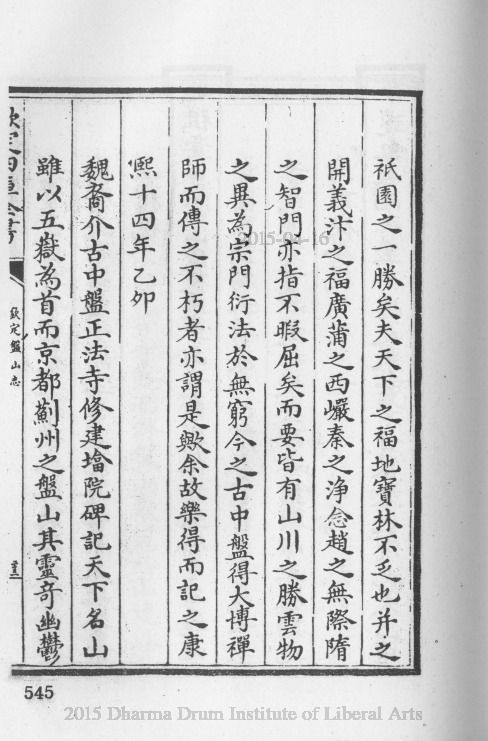 祇園之一勝矣夫天下之福地寶林不乏也并之
開義汴之福廣蒲之西巖秦之淨念趙之無際隋
之智門亦指不暇屈矣而要皆有山川之勝雲物
之異為宗門衍法於無窮今之古中盤得大博禪
師而傳之不朽者亦謂是歟余故樂得而記之康
熙十四年乙卯
魏裔介古中盤正法寺修建塔院碑記天下名山
雖以五嶽為首而京都薊州之盤山其靈奇幽鬱
欽定四庫全書
欽定盤山志
545
2015-04-16
2015 Dharma Drum Institute of Liberal Arts